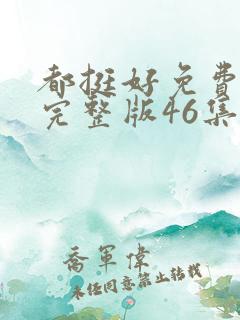 都挺好免费
完整版46集
乔军伟
未经同意禁止转载